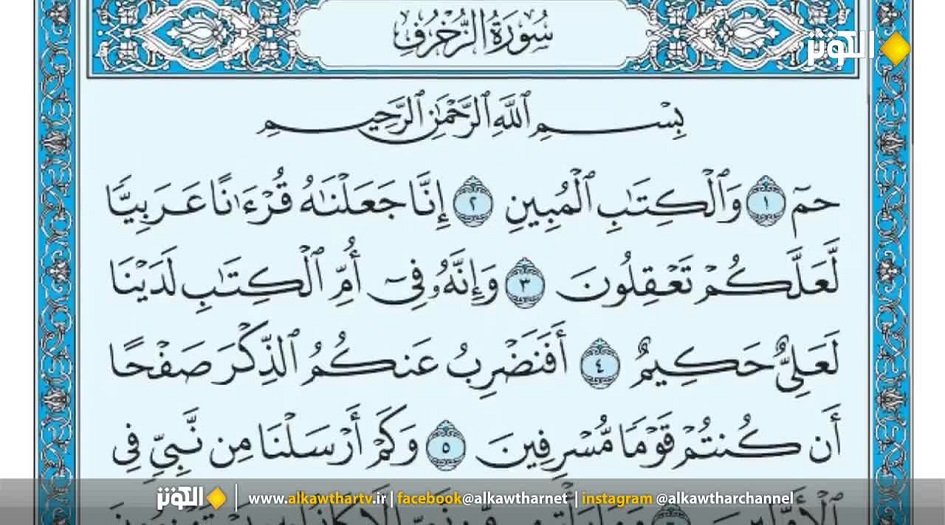 سُورَةُ الزُّخْرُفِ
الكوثر
بِسْمِ ٱللَّهِ ٱلرَّحْمَٰنِ ٱلرَّحِيمِ
حمٓ ١ وَٱلْكِتَٰبِ ٱلْمُبِينِ ٢ إِنَّا جَعَلْنَٰهُ قُرْءَٰنًا عَرَبِيًّا
لَّعَلَّكُمْ تَعْقِلُونَ ٣ وَإِنَّهُۥ فِىٓ أُمِّ ٱلْكِتَٰبِ لَدَيْنَا
لَعَلِىٌّ حَكِيمٌ ٤ أَفَنَضْرِبُ عَنكُمُ ٱلذِّكْرَ صَفْحًا
أَن كُنتُمْ قَوْمًا مُّسْرِفِينَ ٥ وَكَمْ أَرْسَلْنَا مِن نَّبِىٍّ فِى
الكوثر | www.alkawthartv.ir | facebook@alkawtharnet | instagram @alkawtharchannel